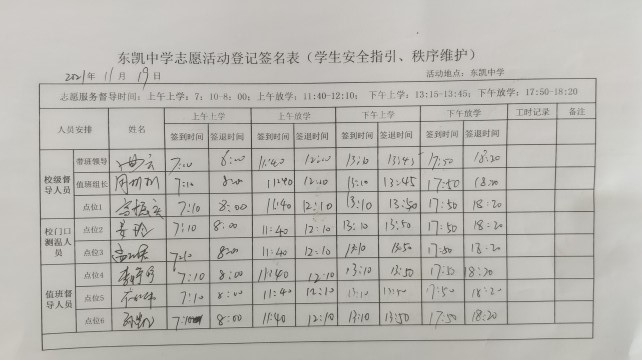 东凯中学志愿活动登记签名表（学生安全指引、秩序维护）
2021年 11月 19日 活动地点：东凯中学
志愿服务督导时间：上午上学：7：10-8：00；上午放学：11:40-12:10；下午上学：13:15-13:45；下午放学：17:50-18:20
人员安排 姓名 上午上学 上午放学 下午上学 下午放学 工时记录 备注
签到时间 签退时间 签到时间 签退时间 签到时间 签退时间 签到时间 签退时间
校级督导人员
带班领导 7:00 8:00 11:40 12:00 13:10 13:45 17:50 18:20
值班组长 7:10 8:00 11:40 12:00 13:10 13:45 17:50 18:20
点位1 7:10 8:00 11:40 12:10 13:10 13:50 17:50 18:20
校门口测温人员
点位2 7:10 8:00 11:40 12:10 13:10 13:50 17:50 18:20
点位3 7:10 8:00 11:40 12:10 13:50 17:50 18:20
值班督导人员
点位4 7:10 8:00 11:40 12:10 13:10 13:50 17:50 18:20
点位5 7:10 8:00 11:40 12:10 13:10 13:50 17:50 18:20
点位6 7:10 8:00 11:40 12:10 13:10 13:50 17:50 18:20